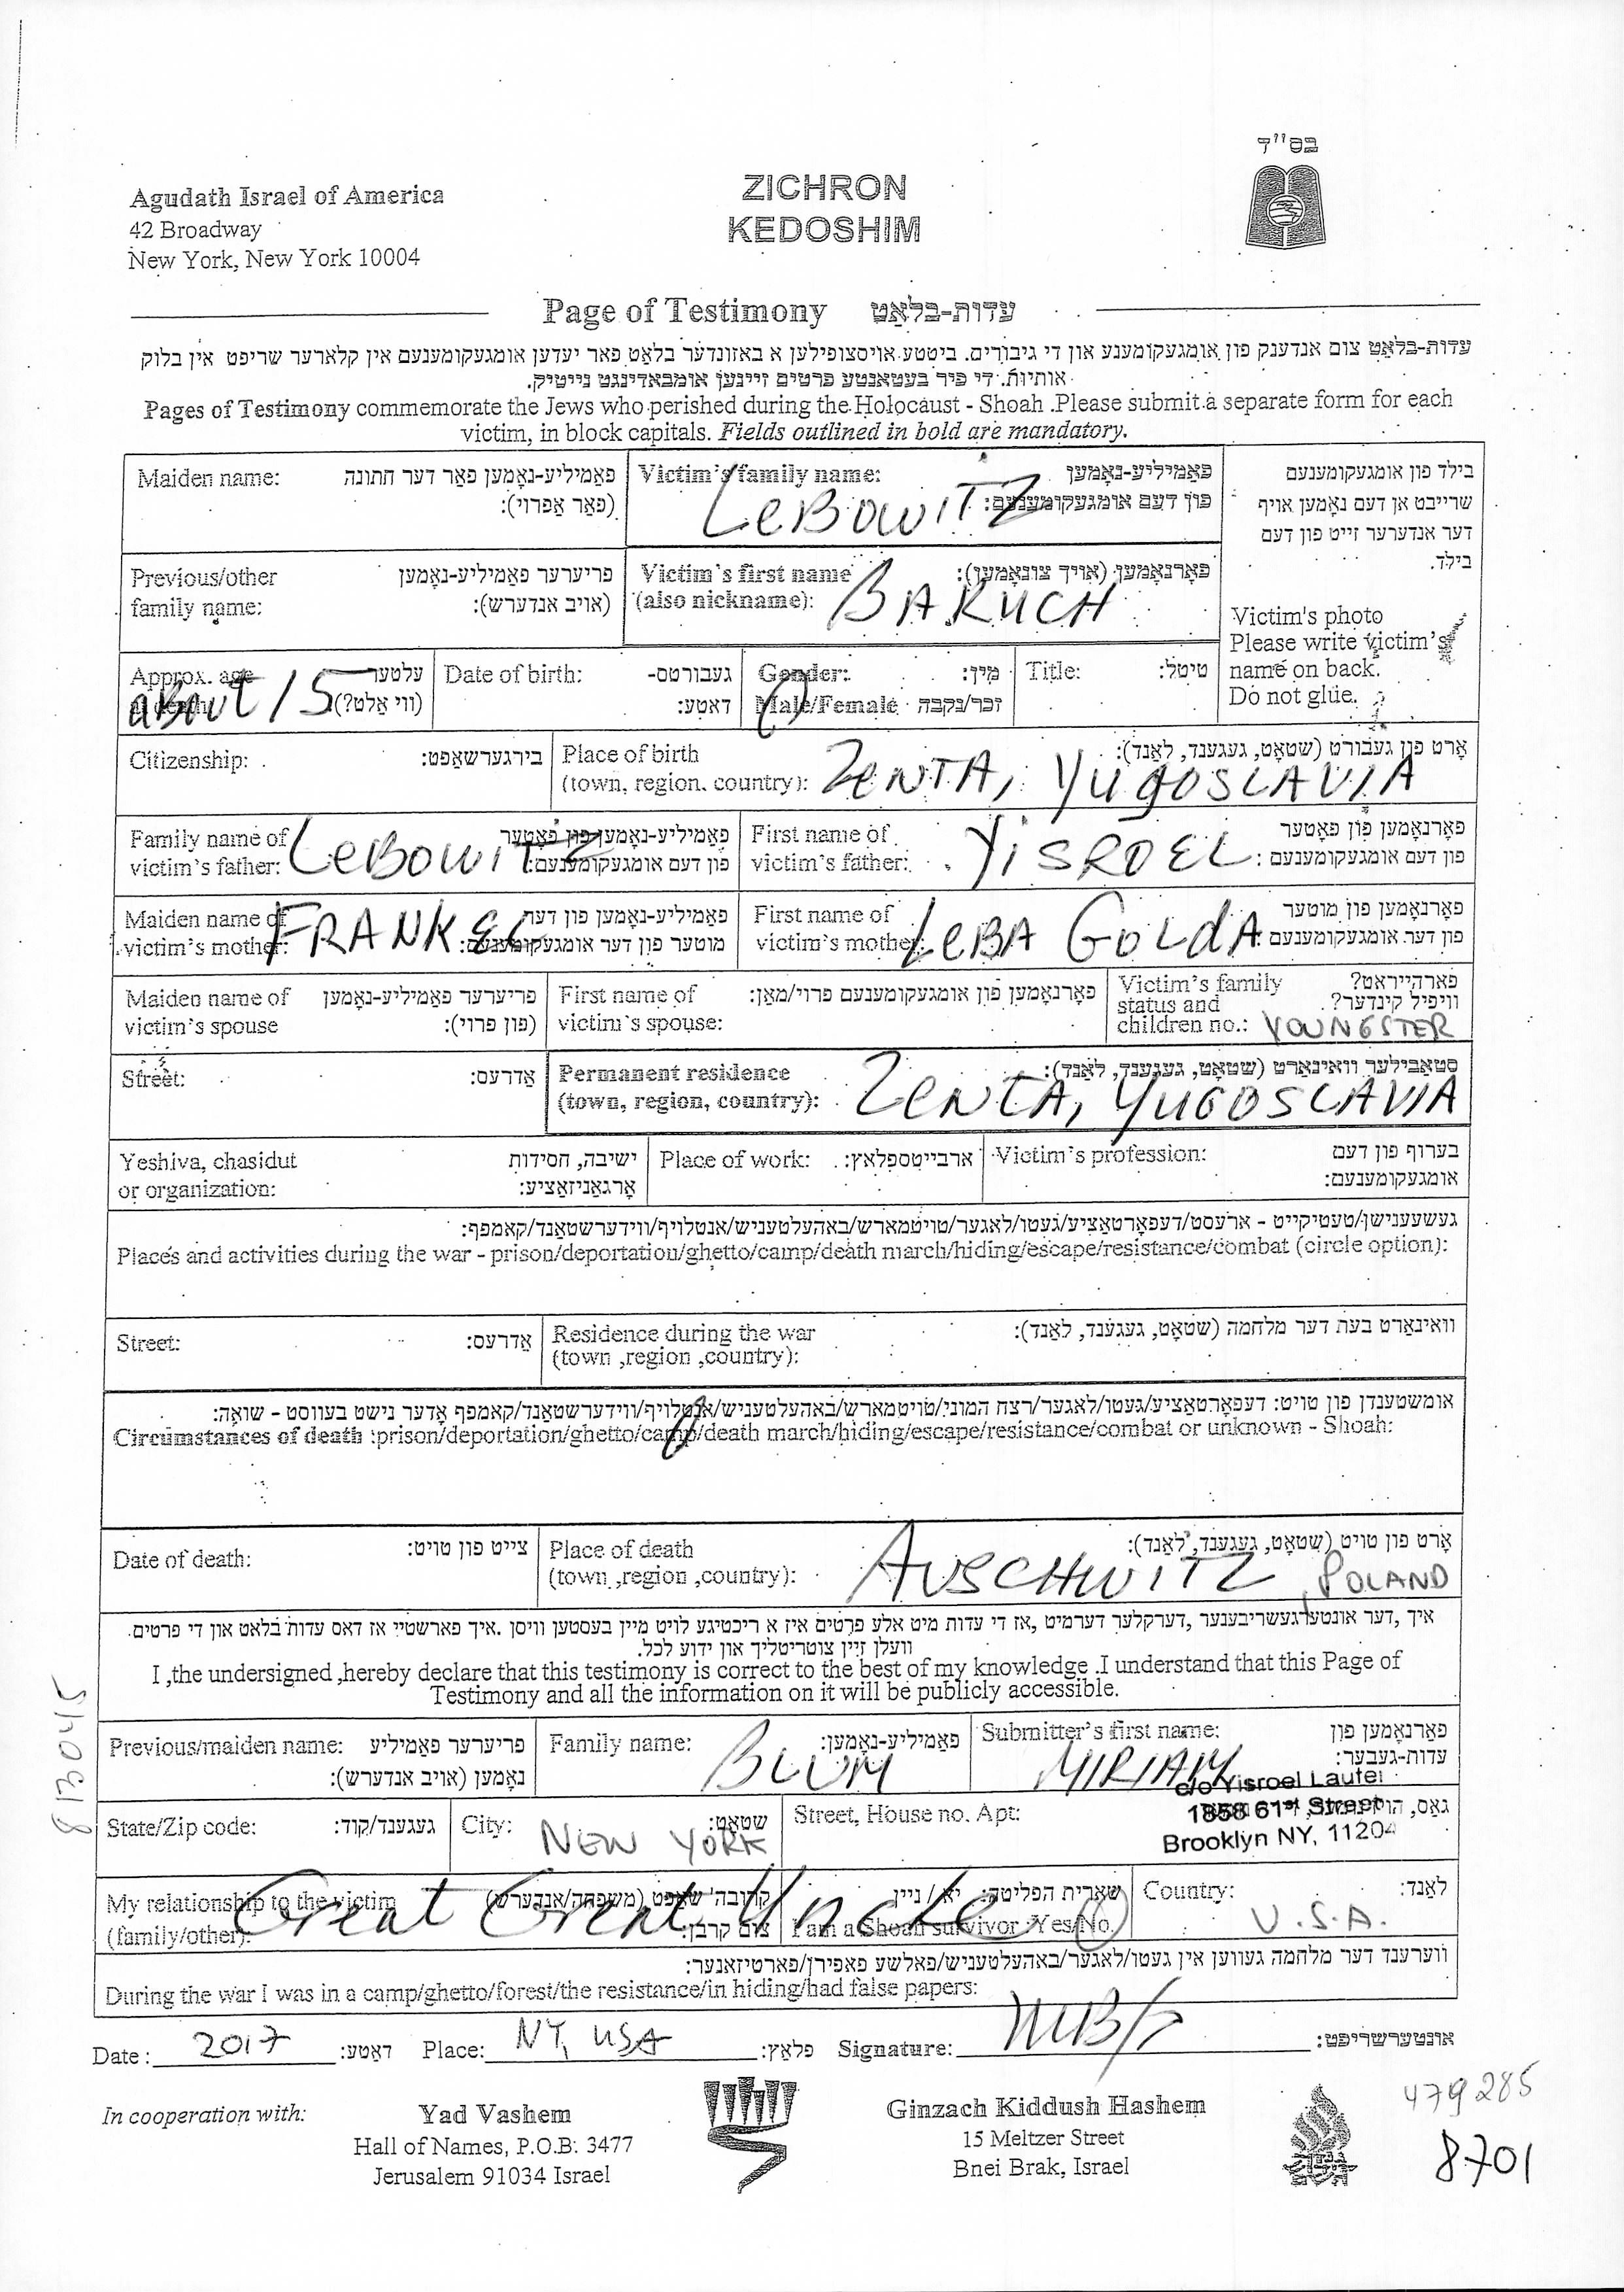 בס"ד
Agudath Israel of America
42 Broadway
New York, New York 10004
ZICHRON
KEDOSHIM
Page of Testimony עדות-בלאַט
עדות-בלאַט צום אנדענק פון אומגעקומענע און די גיבורים. ביטטע אויסצופילען א באזונדער בלאט פאר יעדען אומגעקומענעם אין קלארער שריפט אין בלוק
אותיות. די פיר בעטאנטע פרטים זיינען אומבאדינגט נייטיק.
Pages of Testimony commemorate the Jews who perished during the Holocaust - Shoah .Please submit a separate form for each
victim, in block capitals. Fields outlined in bold are mandatory.
Maiden name: פאַמיליע-נאָמען פאַר דער חתונה
(פאַר אַפרוי):
Victim's family name: פאַמיליע-נאָמען
פון דעם אומגעקומענעם:
LEBOWITZ
בילד פון אומגעקומענעם
שרייבט אן דעם נאָמען אויף
דער אנדערער זייט פון דעם
בילד.
Victim's photo
Please write victim's
name on back.
Do not glue.
Previous/other פריערער פאַמיליע-נאָמען
family name: (אויב אנדערש):
Victim's first name פאָרנאָמען (אויך צונאָמען):
(also nickname): BARUCH
Approx. age עלטער
(ווי אַלט?)
about 15
Date of birth: געבורטס-
דאַטע:
Gender: מין:
Male/Female זכר/נקבה
Title: טיטל:
Citizenship: בירגערשאַפט:
Place of birth אָרט פון געבורט (שטאָט, געגענד, לאַנד):
(town, region, country): ZENTA, YUGOSLAVIA
Family name of פאַמיליע-נאָמען פון פאָטער
victim's father: LEBOWITZ פון דעם אומגעקומענעם:
First name of פאָרנאָמען פון פאָטער
victim's father: YISROEL פון דעם אומגעקומענעם:
Maiden name of פאַמיליע-נאָמען פון דער
victim's mother: FRANKEL מוטער פון דער אומגעקומענעם:
First name of פאָרנאָמען פון מוטער
victim's mother: LEBA GOLDA פון דער אומגעקומענעם:
Maiden name of פריערער פאַמיליע-נאָמען
victim's spouse (פון פרוי):
First name of פאָרנאָמען פון אומגעקומענעם פרוי/מאַן:
victim's spouse:
Victim's family פארהייראט?
status and וויפיל קינדער?
children no.: YOUNGSTER
Street: אַדרעס:
Permanent residence סטאַבילער וואוינאָרט (שטאָט, געגענד, לאַנד):
(town, region, country): ZENTA, YUGOSLAVIA
Yeshiva, chasidut ישיבה, חסידות
or organization: אָרגאַניזאַציע:
Place of work: ארבייטספלאַץ:
Victim's profession: בערוף פון דעם
אומגעקומענעם:
געשעענישן/טעטיקייט - ארעסט/דעפאָרטאַציע/געטו/לאגער/טויטמארש/באהעלטעניש/אנטלויף/ווידערשטאַנד/קאמפף:
Places and activities during the war - prison/deportation/ghetto/camp/death march/hiding/escape/resistance/combat (circle option):
Street: אַדרעס:
Residence during the war וואוינאָרט בעת דער מלחמה (שטאָט, געגענד, לאַנד):
(town ,region ,country):
אומשטענדן פון טויט: דעפאָרטאַציע/געטו/לאגער/רצח המוני/טויטמארש/באהעלטעניש/אנטלויף/ווידערשטאַנד/קאמפף אָדער נישט בעוואוסט - שואה:
Circumstances of death :prison/deportation/ghetto/camp/death march/hiding/escape/resistance/combat or unknown - Shoah:
Date of death: צייט פון טויט:
Place of death אָרט פון טויט (שטאָט, געגענד, לאַנד):
(town ,region ,country): AUSCHWITZ, POLAND
איך ,דער אונטערגעשריבענער ,דערקלער דערמיט ,אז די עדות מיט אלע פרטים איז א ריכטיגע לויט מיין בעסטען וויסן .איך פארשטיי אז דאס עדות בלאט און די פרטים
וועלן זיין צוטריטליך און ידוע לכל.
I ,the undersigned ,hereby declare that this testimony is correct to the best of my knowledge .I understand that this Page of
Testimony and all the information on it will be publicly accessible.
Previous/maiden name: פריערער פאַמיליע
נאָמען (אויב אנדערש):
Family name: פאַמיליע-נאָמען:
BLUM
Submitter's first name: פאָרנאָמען פון
עדות-געבער:
MIRIAM
State/Zip code: געגענד/קוד:
City: שטאָט:
NEW YORK
Street, House no. Apt:
c/o Yisroel Laufer
1858 61st Street
Brooklyn NY, 11204
My relationship to the victim קרובה'שאַפט (משפחה/אנדערש)
(family/other): צום קרבן:
Great Great Uncle
שארית הפליטה: יא / ניין
I am a Shoah survivor :Yes/No
Country: לאַנד:
U.S.A.
ווערענד דער מלחמה געווען אין געטו/לאגער/באהעלטעניש/פאלשע פאפירן/פארטיזאנער:
During the war I was in a camp/ghetto/forest/the resistance/in hiding/had false papers:
Date : 2017 דאַטע: Place: NY, USA פלאַץ: Signature: אונטערשריפט:
In cooperation with:
Yad Vashem
Hall of Names, P.O.B. 3477
Jerusalem 91034 Israel
Ginzach Kiddush Hashem
15 Meltzer Street
Bnei Brak, Israel
479285
8701
813045